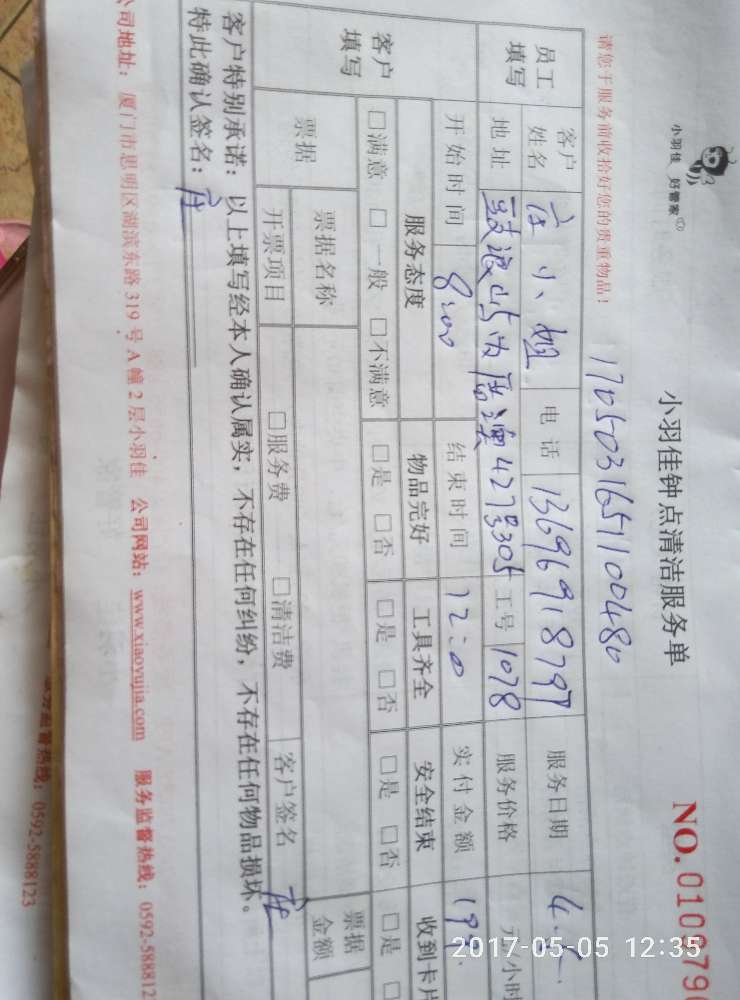 小羽佳 好管家
小羽佳钟点清洁服务单
NO.
请您于服务前收拾好您的贵重物品!
1705031651100480
员工填写 客户姓名 小姐 电话 13696918797 服务日期
地址 鼓浪屿 427号305 工号 1078 服务价格 元/小时
客户填写 开始时间 8:00 结束时间 12:00 实付金额
服务态度 物品完好 工具齐全 安全结束 收到卡片
□满意 □一般 □不满意 □是 □否 □是 □否 □是 □否 □是
票据 票据名称 票据金额
开票项目 □服务费 □清洁费 客户签名
客户特别承诺: 以上填写经本人确认属实, 不存在任何纠纷, 不存在任何物品损坏。
特此确认签名:
公司地址: 厦门市思明区湖滨东路 319 号 A 幢 2 层小羽佳 公司网站: www.xiaoyujia.com 服务监督热线: 0592-5888123
服务监督热线: 0592-5888123
2017-05-05 12:35